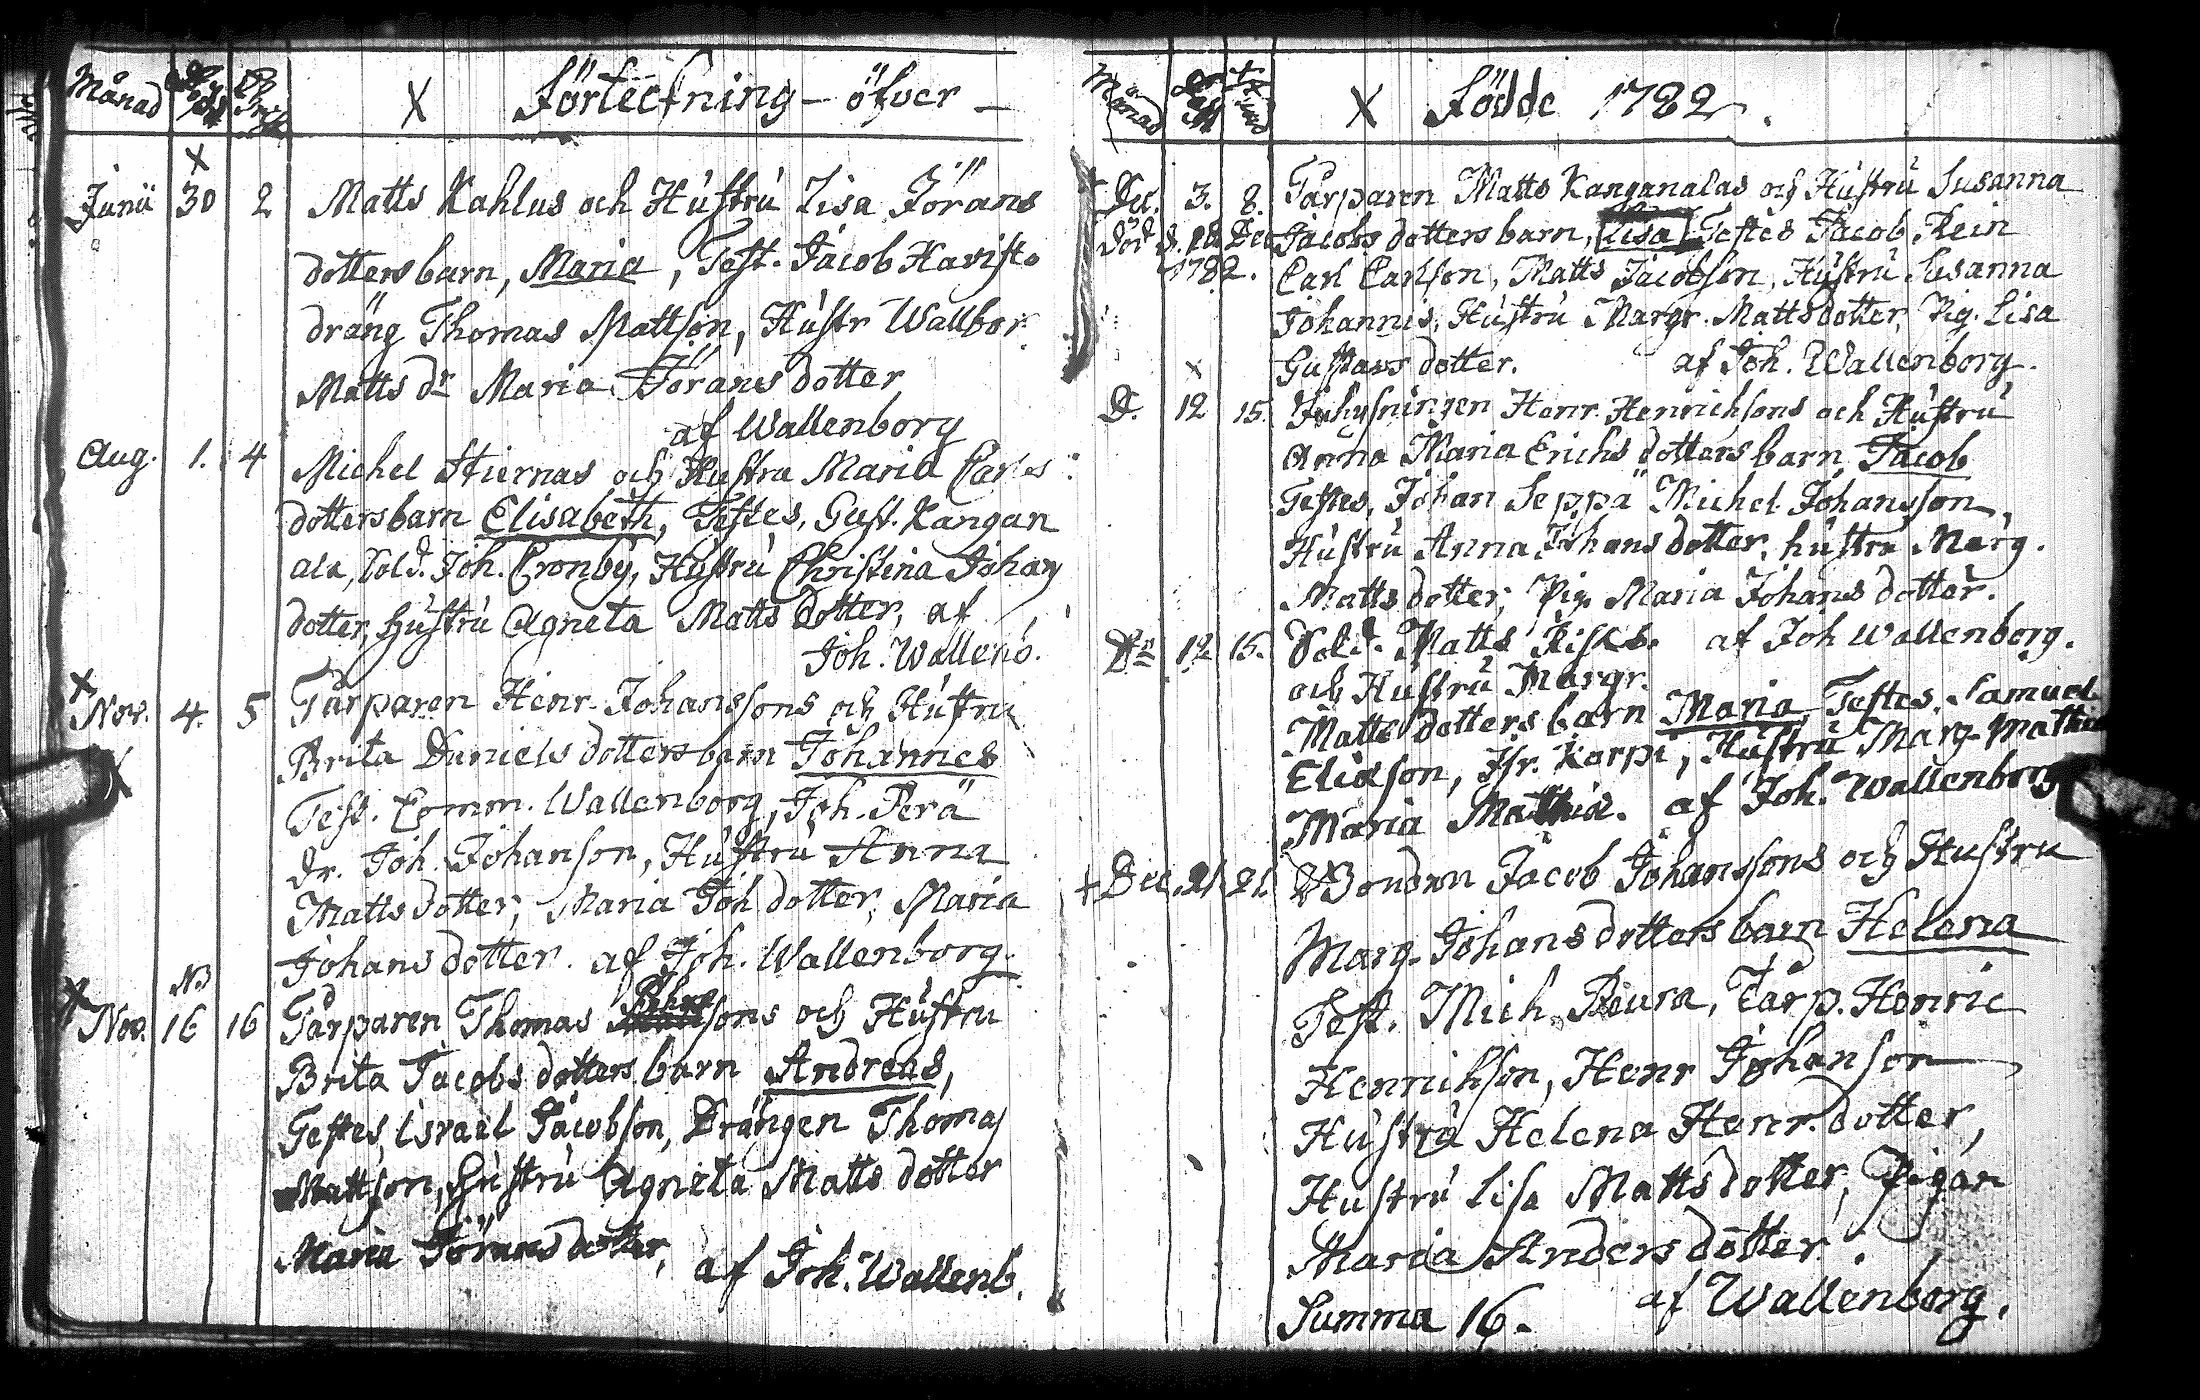 Månad
X Förteckning – öfver –
X
Junii 30 2 Matts Kahlus och Hústrú Lisa Jörans
dotters barn, Maria, Test. Jacob Havisto
dräng Thomas Mattson, Hústr Wallbor
Matts dr Maria Jörans dotter
af Wallenborg
Aug. 1. 4 Michel Stiernas och Hustru Maria Carls
dotters barn Elisabeth, Testes, Gust. Kangan
ala, Sold. Joh. Cronby, Hústrú Christina Johan
dotter, hústrú Agneta Matts dotter, af
Joh. Wallenb.
X Nov. 4. 5 Tårparen Henr. Johanssons och Hústru
Brita Daniels dotters barn Johannes
Test. Comm. Wallenborg, Joh. Perä
dr. Joh. Johanson, Hústrú Anna
Matts dotter, Maria Joh dotter, Maria
Johans dotter. af Joh. Wallenborg.
NB
X Nov. 16 16 Tårparen Thomas Johanssons och Hústru
Brita Jacobs dotters barn Andreas,
Testes, Israel Jacobson, Drängen Thomas
Mattson, Hústrú Agneta Matts dotter
Maria Jörans dotter, af Joh. Wallenb.
Månad
X Födde 1782.
Dec. 3. 8. Tårparen Matts Kanganalas och Hústrú Susanna
Död d. Dec Jacobs dotters barn, Lisa Testes Jacob Rein
1782. Carl Carlson, Matts Jacobson, Hústrú Susanna
Johannis, Hústrú Margr. Mattsdotter, Pig. Lisa
Gustavs dotter. af Joh. Wallenborg.
X
D. 12 15. Inhysningen Henr. Henrichsons och Hústrú
Anna Maria Erichs dotters barn Jacob
Testes, Johan Seppä Michel Johansson,
Hústrú Anna Johans dotter, hústrú Marg.
Matts dotter, Pig. Maria Johans dotter.
Do 12 15. Sold. Matts Risk b. af Joh Wallenborg.
och Hustrú Margr.
Matts dotters barn Maria Testes, Samuel
Eliason, Isr. Karpi, Hústrú Marg. Mathia
Maria Mathia. af Joh. Wallenborg
+ Dec. 21. 21. Bonden Jacob Johanssons och Hustru
Marg. Johans dotters barn Helena
Test. Mich. Peura, Tårp. Henric
Henrichson, Henr Johanson
Hústrú Helena Henr. dotter,
Hustrú Lisa Matts dotter, Pigan
Maria Anders dotter.
Summa 16. af Wallenborg.